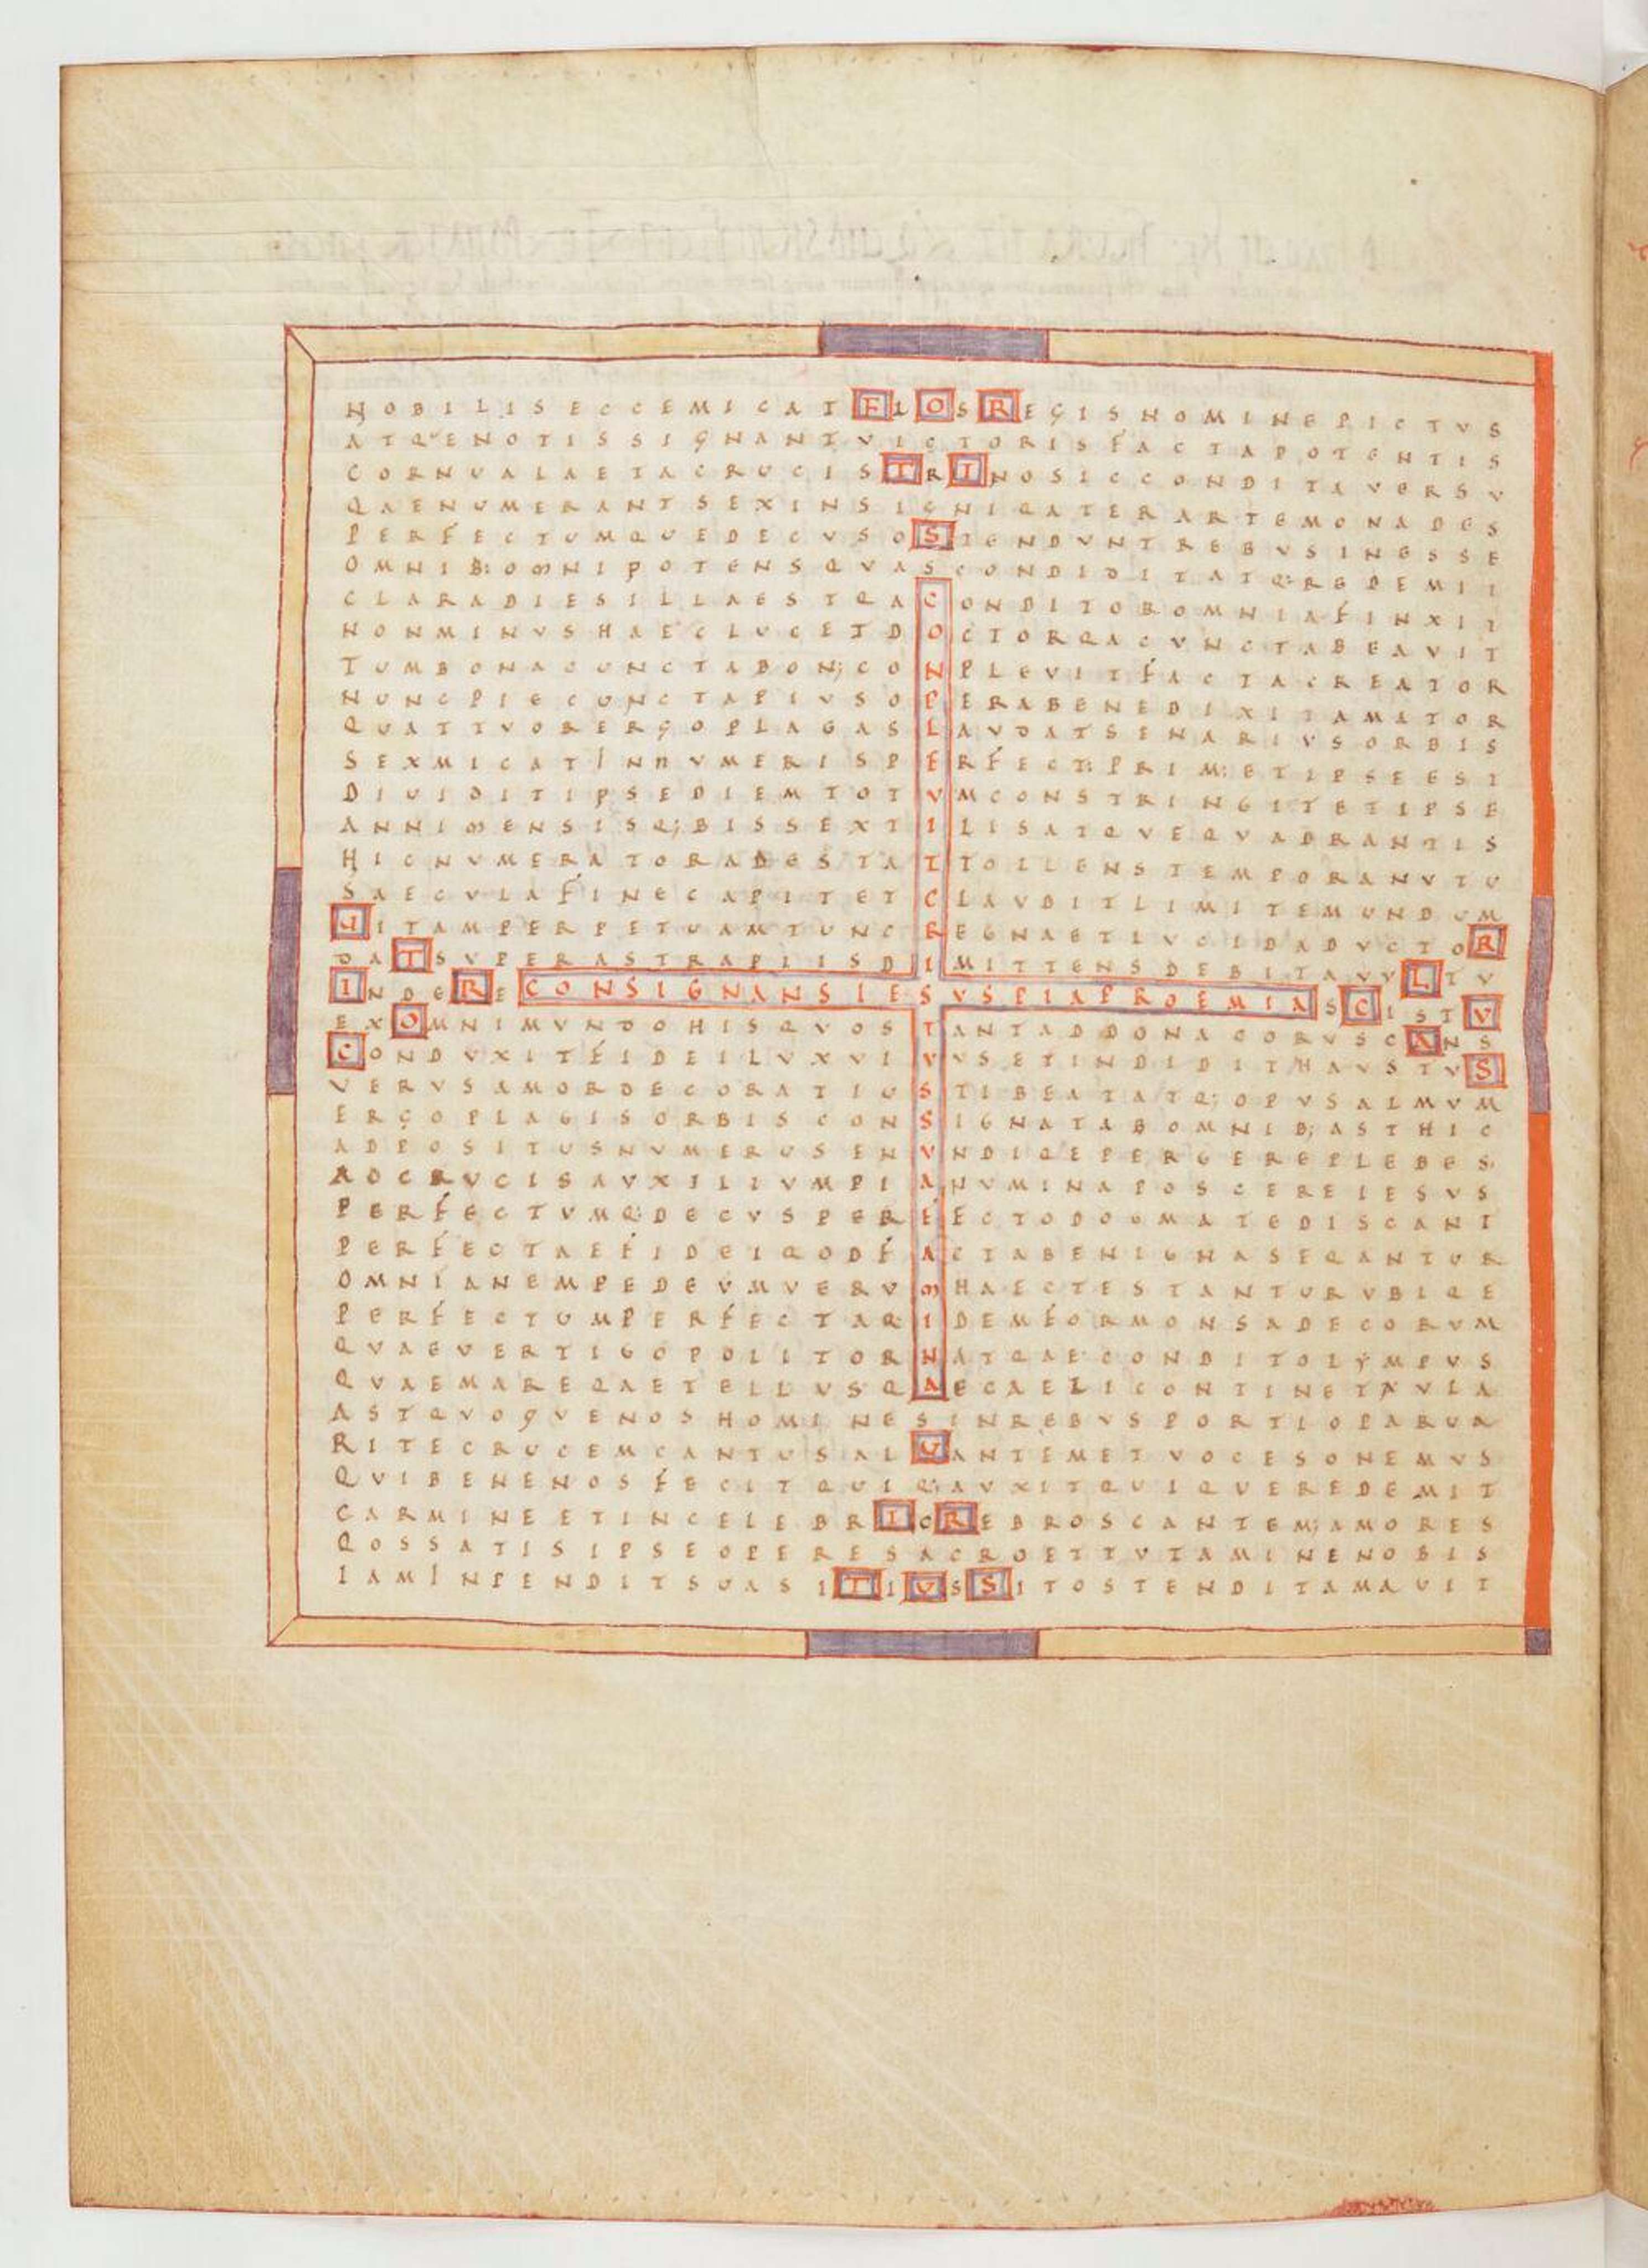 NOBILISECCEMICATFLOSREGISNOMINEPICTVS
ATQ·ENOTISSIGNANTVICTORISFACTAPOTENTIS
CORNUALAETACRUCISTRINOSICCONDITAVERSV
QAENUMERANTSEXINSIGNIQATERARTEMONADES
PERFECTUMQUEDECVSOSTENDVNTREBVSINESSE
OMNIB:OMNIPOTENSQVASCONDIDITATQ:REDEMIT
CLARADIESILLAESTQACONDITOROMNIAFINXIT
NONMINVSHAECLVCETDOCTORQACVNCTABEAVIT
TUMBONACUNCTABON;CONPLEVITFACTACREATOR
NUNCPIECUNCTAPIVSOPERABENEDIXITAMATOR
QUATTVORERGOPLAGASLAVDATSENARIVSORBIS
SEXMICATINNVMERISPERFECT:PRIM:ETIPSEEST
DIUIDITIPSEDIEMTOTVMCONSTRINGITETIPSE
ANNIMENSISQ;BISSEXTILISATQVEQVADRANTIS
HICNVMERATORADESTATTOLLENSTEMPORANVTU
SAECVLAFINECAPITETCLAVDITLIMITEMUNDUM
UITAMPERPETUAMTUNCREGNAETLVCIDADVCTOR
DATSVPERASTRAPIISDIMITTENSDEBITAVVLTV
INDERECONSIGNANSIESVSPIAPROEMIASCISTV
EXOMNIMVNDOHISQVOSTANTADDONACORVSCANS
CONDVXITFIDEILVXVIVVSETINDIDITHAVSTVS
VERVSAMORDECORATIUSTIBEATATQ;OPVSALMVM
ERGOPLAGISORBISCONSIGNATABOMNIB;ASTHIC
ADPOSITUSNVMERUSENVNDIQEPERGEREPLEBES
ADCRVCISAVXILIVMPIANVMINAPOSCEREIESVS
PERFECTVMQ:DECVSPERFECTODOGMATEDISCANT
PERFECTAEFIDEIQODFACTABENIGNASEQANTUR
OMNIANEMPEDEVMVERVMHAECTESTANTURVBIQE
PERFECTUMPERFECTAQ:IDEMFORMONSADECORVM
QVAEVERTIGOPOLITORNATQAECONDITOLYMPVS
QVAEMAREQAETELLVSQAECAELICONTINETAVLA
ASTQVOQVENOSHOMINESINREBVSPORTIOPARUA
RITECRUCEMCANTUSALUANTEMETVOCESONEMVS
QVIBENENOSFECITQUIQ;AVXITQUIQVEREDEMIT
CARMINEETINCELEBRICREBROSCANTEM;AMORES
QOSSATISIPSEOPERESACROETTVTAMINENOBIS
IAMINPENDITSUASITIUSSITOSTENDITAMAUIT